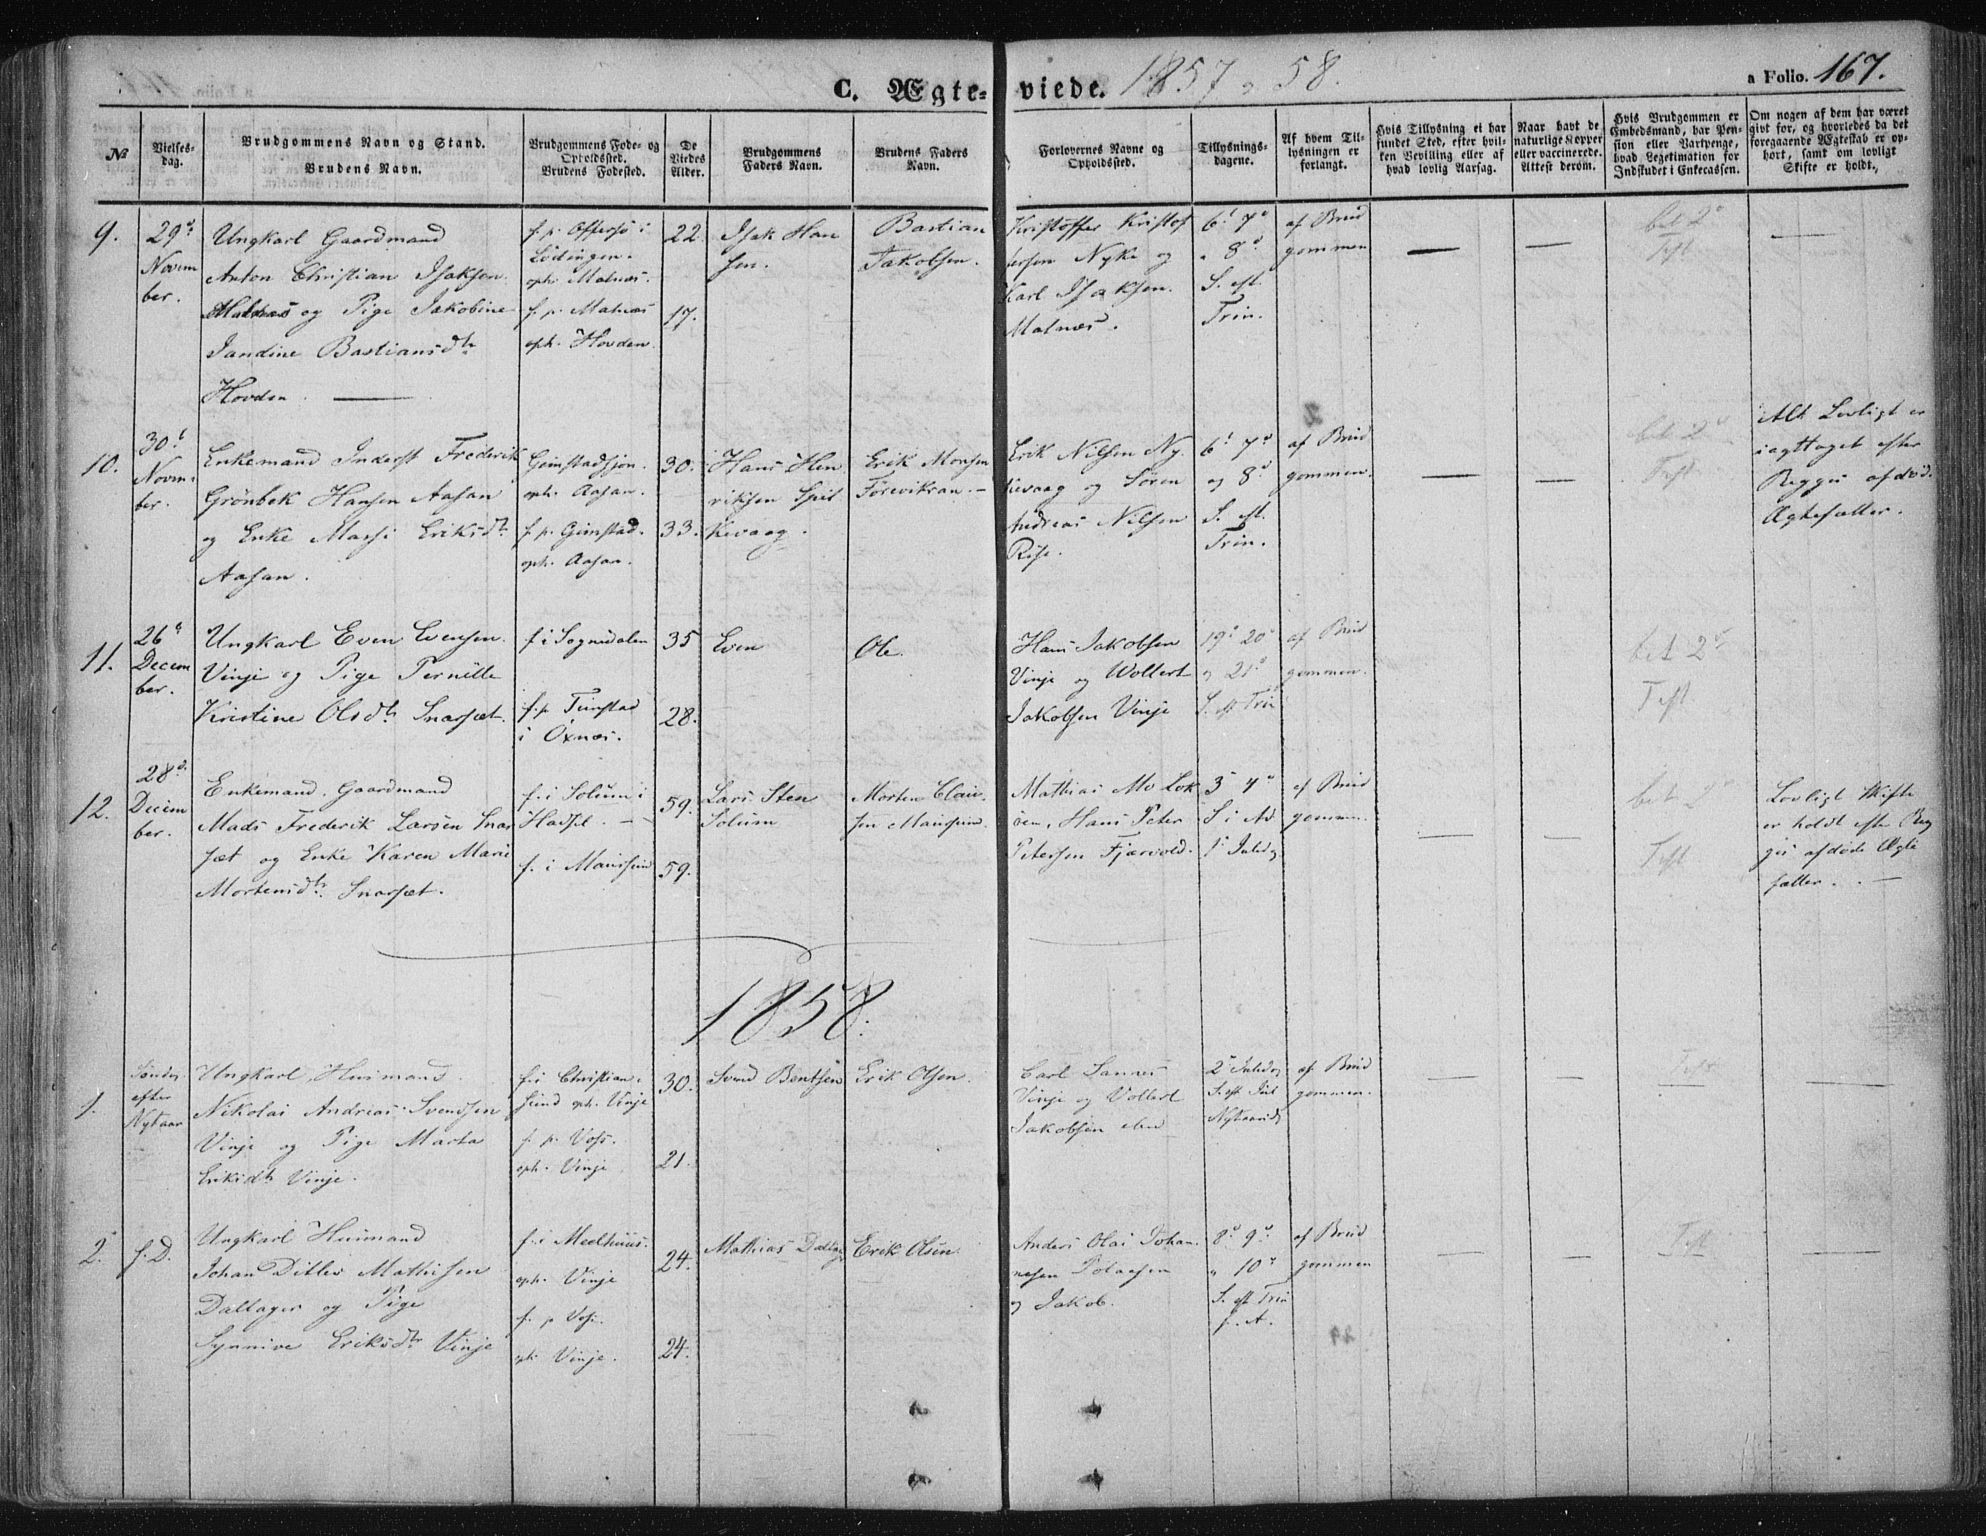 C. Ægteviede. 1857 og 58.
a Folio. 167.
№
Vielses-
dag.
Brudgommens Navn og Stand.
Brudens Navn.
Brudgommens Føde- og
Opholdssted.
Brudens Fødested.
De
Viedes
Alder.
Brudgommens
Faders Navn.
Brudens Faders
Navn.
Forlovernes Navne og
Opholdssted.
Tillysnings-
dagene.
Af hvem Til-
lysningen er
forlangt.
Hvis Tillysning ei har
fundet Sted, efter hvil-
ken Bevilling eller af
hvad lovlig Aarsag.
Naar havt de
naturlige Kopper
eller vaccinerede.
Attest derom.
Hvis Brudgommen er
Embedsmand, har Pen-
sion eller Vartpenge,
hvad Legitimation for
Indskudet i Enkecassen.
Om nogen af dem har været
gift for, og hvorledes da det
foregaaende Ægteskab er op-
hørt, samt om lovligt
Skifte er holdt.
9.
29d
Novem
ber.
Ungkarl Gaardmand
Anton Christian Isaksen
Malnæs og Pige Jakobine
Jandine Bastiansdtr
Hovden.
f. p. Offersø i
Lødingen.
oph. Malnæs.
f. p. Malnæs
oph. Hovden.
22.
17.
Isak Han
sen.
Bastian
Jakobsen.
Kristoffer Kristof
fersen Nyke og
Karl Isaksen.
Malnæs.
6t 7d
" 8d
S. eft.
Trin.
af Brud
gommen
bet 2d
Test
10.
30t
Novem-
ber.
Enkemand Inderst Frederik
Grønbek Hansen Aasan
og Enke Massi Eriksdtr
Aasan.
Gimstadsjon.
oph. Aasan.
f. p. Gimstad.
oph. Aasan.
30.
33.
Hans Hen
riksen Spil
Kevaag.
Erik Monsen
Førevikran.
Erik Nilsen Ny.
Kevaag og Søren
Andreas Nilsen
Rise.
6t 7d
og 8d
S. eft.
Trin.
af Brud
gommen.
bet 2d
Test
Alt Lovligt er
iagttaget efter
Begges afdøde
Ægtefæller.
11.
26d
Decem
ber.
Ungkarl Even Evensen
Vinje og Pige Pernille
Kristine Olsdtr Snarset.
f. i Sognedalen
f. p. Tunstad
i Øxnes.
35
28.
Even
Ole.
Hans Jakobsen
Vinje og Wollert
Jakobsen Vinje
19d 20d
og 21d
S. eft Trin
af Brud
gommen.
bet 2d
Test
12.
28d
Decem
ber.
Enkemand. Gaardmand
Mads Frederik Larsen Snar
sæt og Enke Karen Marie
Mortensdtr Snarsæt.
f. i Solum i
Hadsel.
f. i Maursund
59.
59.
Lars Sten
Solum
Morten Clau
sen Maursund.
Mathias Mo Lok
øen, Hans Peter
Petersen Fjærvold.
3d 4d
S i Ad
1t Juledag
af Brud
gommen.
bet 2d
Test
Lovligt Skifte
er holdt efter Beg
ges afdøde Ægte
fæller.
1858.
1.
Søndag
efter
Nytaar
Ungkarl, Husmand
Nikolai Andreas Svendsen
Vinje og Pige Marta
Eriksdtr Vinje.
f. i Christian-
sund oph. Vinje
f. p. Voss.
oph. Vinje
30.
21.
Svend Bentsen
Erik Olsen.
Carl Sannes
Vinje og Vollert
Jakobsen eben
2d Juledag
S. eft Jul
Nytaarsdag
af Brud
gommen.
Test
2.
f. D.
Ungkarl Husmand
Johan Ditlev Mathisen
Dallager og Pige
Synnive Eriksdtr Vinje
f. i Meelhuus.
oph. Vinje
f. p Voss.
oph. Vinje.
24.
24.
Mathias Dallager
Erik Olsen.
Anders Olai Johan
nesen
og Jakob.
8d 9d
" 10d
S. eft Trin
f. A.
af Brud
gommen
Test